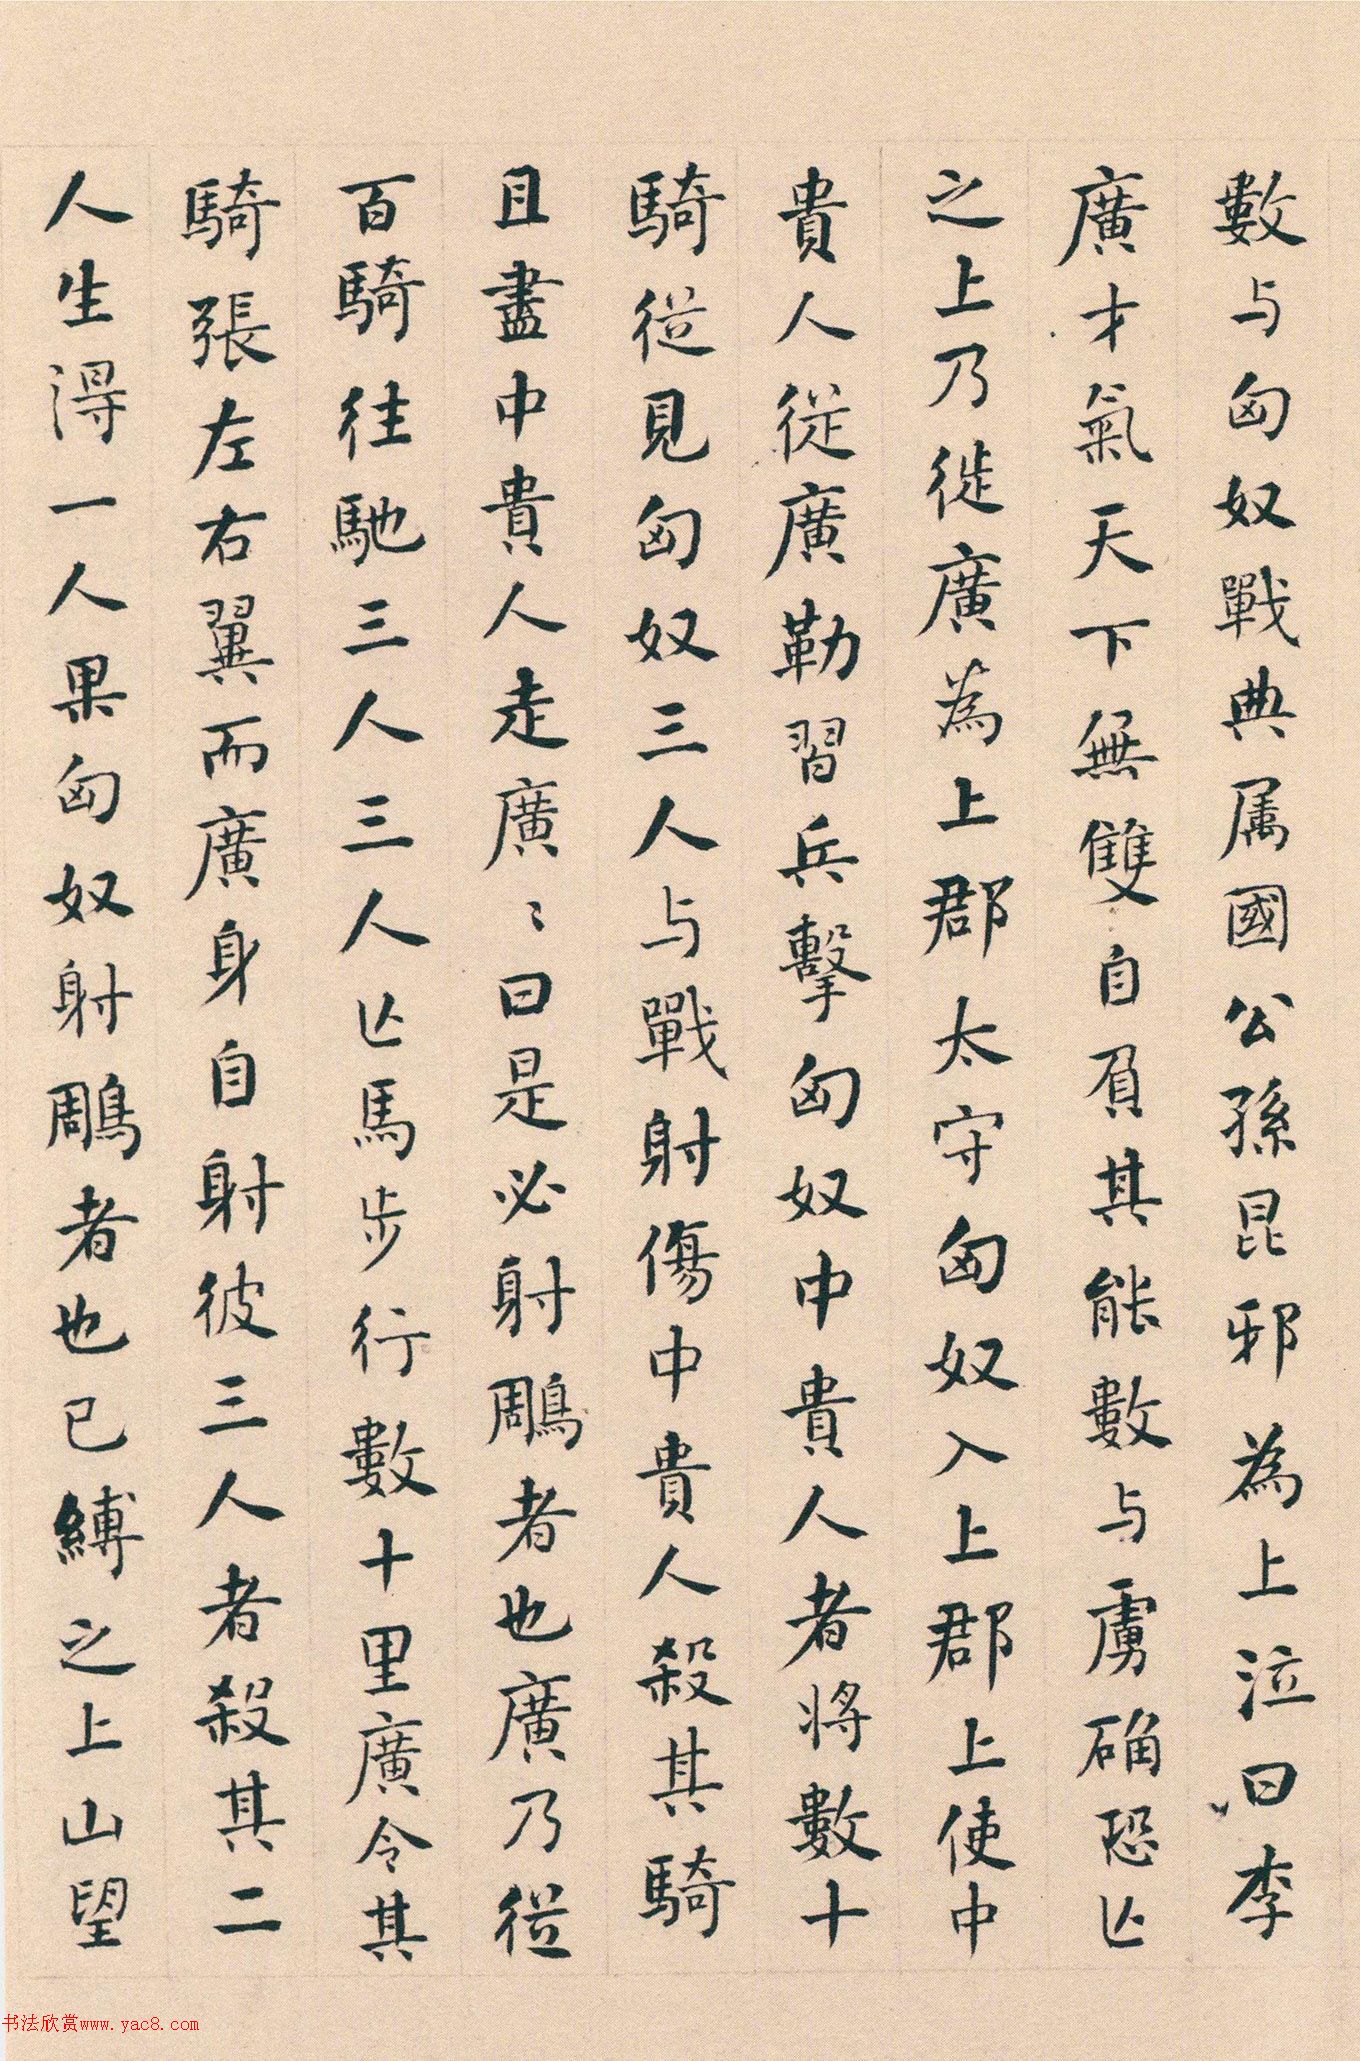 數与匈奴戰典属國公孫昆邪為上泣曰李
廣才氣天下無雙自負其能數与虜确恐亾
之上乃徙廣為上郡太守匈奴入上郡上使中
貴人從廣勒習兵擊匈奴中貴人者將數十
騎從見匈奴三人与戰射傷中貴人殺其騎
且盡中貴人走廣〻曰是必射鵰者也廣乃從
百騎往馳三人三人亾馬步行數十里廣令其
騎張左右翼而廣身自射彼三人者殺其二
人生得一人果匈奴射鵰者也已縛之上山望
书法欣赏www.yac8.com